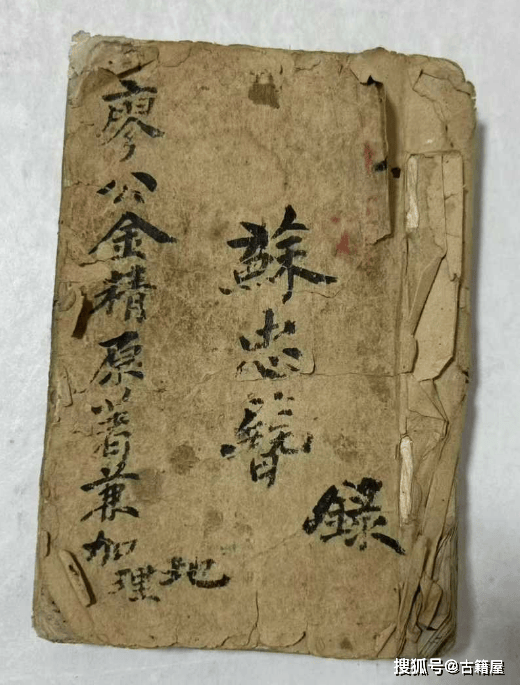 廖公金精原著兼加地理
蘇忠簪
錄
搜狐号@古籍屋